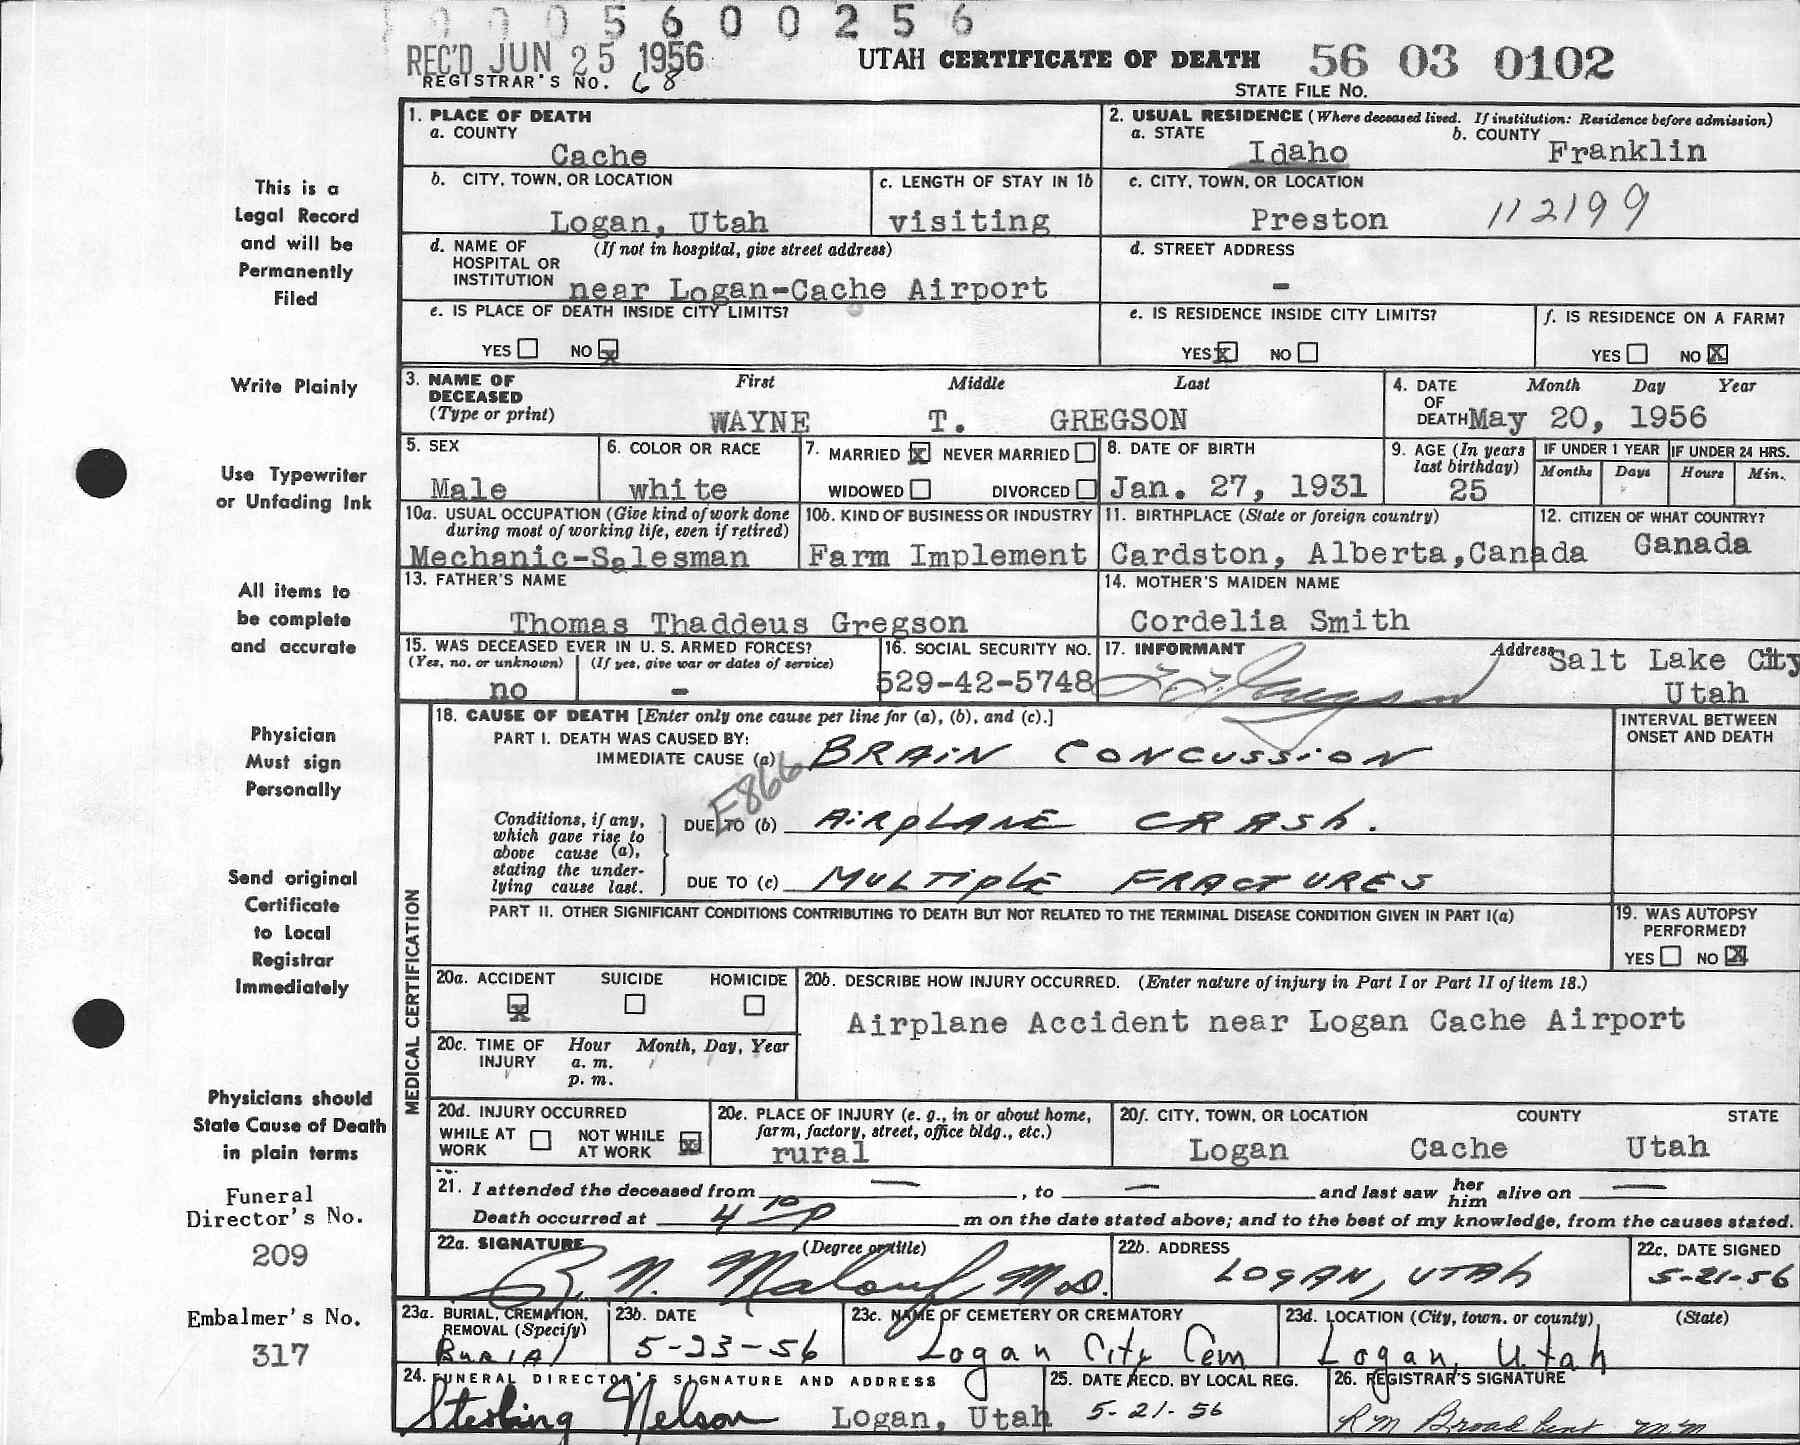 0005600256
REC'D JUN 25 1956
UTAH CERTIFICATE OF DEATH 56 03 0102
REGISTRAR'S NO. 68
STATE FILE NO.
This is a
Legal Record
and will be
Permanently
Filed
Write Plainly
Use Typewriter
or Unfading Ink
All items to
be complete
and accurate
Physician
Must sign
Personally
Send original
Certificate
to Local
Registrar
Immediately
Physicians should
State Cause of Death
in plain terms
Funeral
Director's No.
209
Embalmer's No.
317
1. PLACE OF DEATH
a. COUNTY
Cache
2. USUAL RESIDENCE (Where deceased lived. If institution: Residence before admission)
a. STATE b. COUNTY
Idaho Franklin
b. CITY, TOWN, OR LOCATION
Logan, Utah
c. LENGTH OF STAY IN 1b
visiting
c. CITY, TOWN, OR LOCATION
Preston 112199
d. NAME OF HOSPITAL OR INSTITUTION (If not in hospital, give street address)
near Logan-Cache Airport
d. STREET ADDRESS
-
e. IS PLACE OF DEATH INSIDE CITY LIMITS?
YES NO X
e. IS RESIDENCE INSIDE CITY LIMITS?
YES X NO
f. IS RESIDENCE ON A FARM?
YES NO X
3. NAME OF DECEASED (Type or print)
First Middle Last
WAYNE T. GREGSON
4. DATE OF DEATH Month Day Year
May 20, 1956
5. SEX
Male
6. COLOR OR RACE
white
7. MARRIED X NEVER MARRIED
WIDOWED DIVORCED
8. DATE OF BIRTH
Jan. 27, 1931
9. AGE (In years last birthday)
25
IF UNDER 1 YEAR IF UNDER 24 HRS.
Months Days Hours Min.
10a. USUAL OCCUPATION (Give kind of work done during most of working life, even if retired)
Mechanic-Salesman
10b. KIND OF BUSINESS OR INDUSTRY
Farm Implement
11. BIRTHPLACE (State or foreign country)
Cardston, Alberta,Canada
12. CITIZEN OF WHAT COUNTRY?
Canada
13. FATHER'S NAME
Thomas Thaddeus Gregson
14. MOTHER'S MAIDEN NAME
Cordelia Smith
15. WAS DECEASED EVER IN U. S. ARMED FORCES?
(Yes, no. or unknown) (If yes, give war or dates of service)
no -
16. SOCIAL SECURITY NO.
529-42-5748
17. INFORMANT Address
T. T. Gregson Salt Lake City
Utah
MEDICAL CERTIFICATION
18. CAUSE OF DEATH [Enter only one cause per line for (a), (b), and (c).]
INTERVAL BETWEEN ONSET AND DEATH
PART I. DEATH WAS CAUSED BY:
IMMEDIATE CAUSE (a) BRAIN CONCUSSION
E866
Conditions, if any, which gave rise to above cause (a), stating the underlying cause last.
DUE TO (b) AIRPLANE CRASH.
DUE TO (c) MULTIPLE FRACTURES
PART II. OTHER SIGNIFICANT CONDITIONS CONTRIBUTING TO DEATH BUT NOT RELATED TO THE TERMINAL DISEASE CONDITION GIVEN IN PART I(a)
19. WAS AUTOPSY PERFORMED?
YES NO X
20a. ACCIDENT SUICIDE HOMICIDE
X
20b. DESCRIBE HOW INJURY OCCURRED. (Enter nature of injury in Part I or Part II of item 18.)
Airplane Accident near Logan Cache Airport
20c. TIME OF INJURY Hour Month, Day, Year
a. m.
p. m.
20d. INJURY OCCURRED
WHILE AT WORK NOT WHILE AT WORK X
20e. PLACE OF INJURY (e. g., in or about home, farm, factory, street, office bldg., etc.)
rural
20f. CITY, TOWN, OR LOCATION COUNTY STATE
Logan Cache Utah
21. I attended the deceased from — , to — and last saw her him alive on —
Death occurred at 4 10 p m on the date stated above; and to the best of my knowledge, from the causes stated.
22a. SIGNATURE (Degree or title)
R. N. Malouf, M.D.
22b. ADDRESS
LOGAN, UTAH
22c. DATE SIGNED
5-21-56
23a. BURIAL, CREMATION, REMOVAL (Specify)
BURIAL
23b. DATE
5-23-56
23c. NAME OF CEMETERY OR CREMATORY
Logan City Cem
23d. LOCATION (City, town. or county) (State)
Logan, Utah
24. FUNERAL DIRECTOR'S SIGNATURE AND ADDRESS
Sterling Nelson Logan, Utah
25. DATE RECD. BY LOCAL REG.
5-21-56
26. REGISTRAR'S SIGNATURE
RM Broadbent